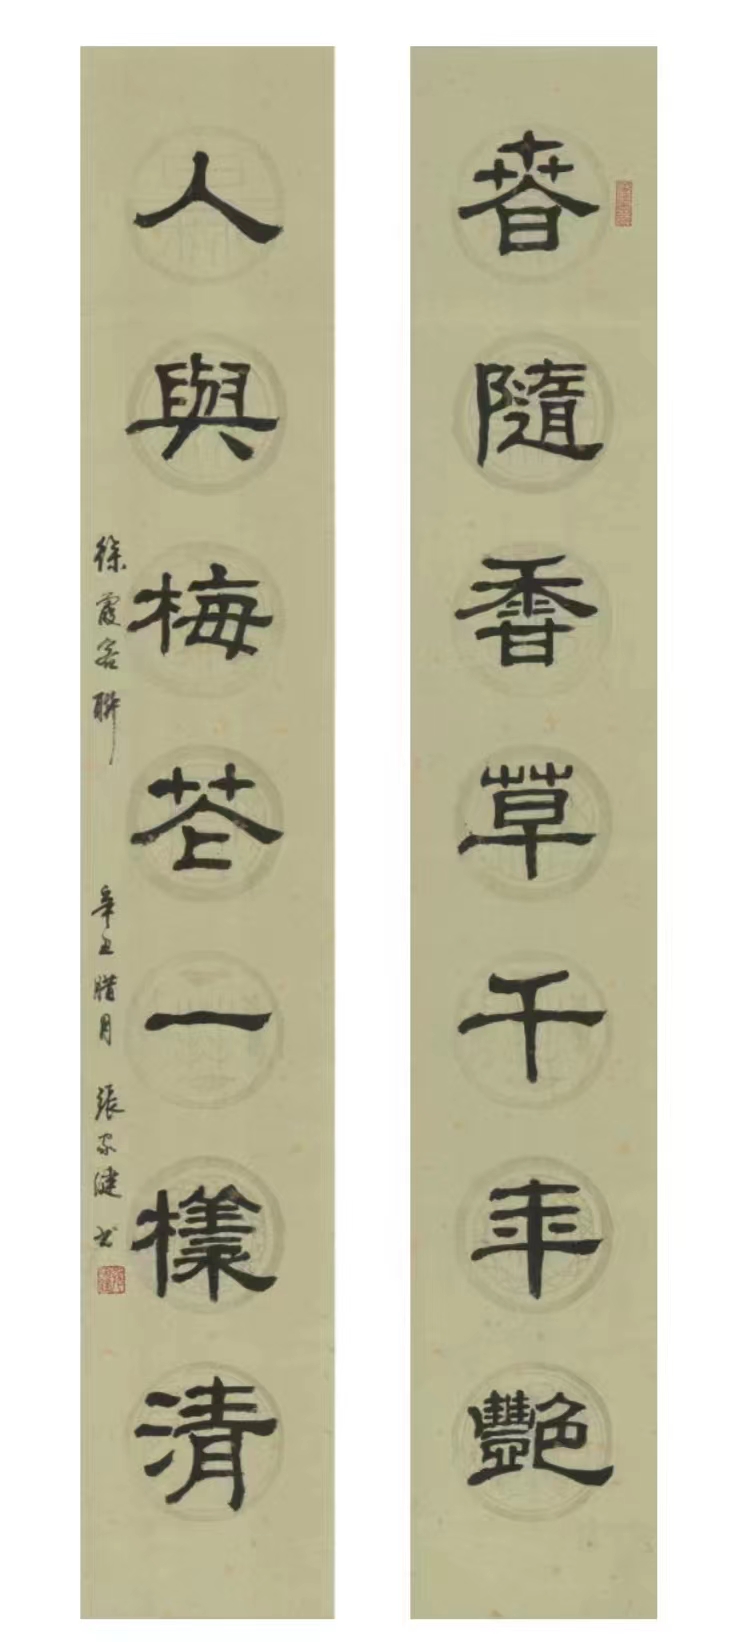 春隨香草千年艷
人與梅花一樣清
徐霞客聯
辛丑腊月 張家健书